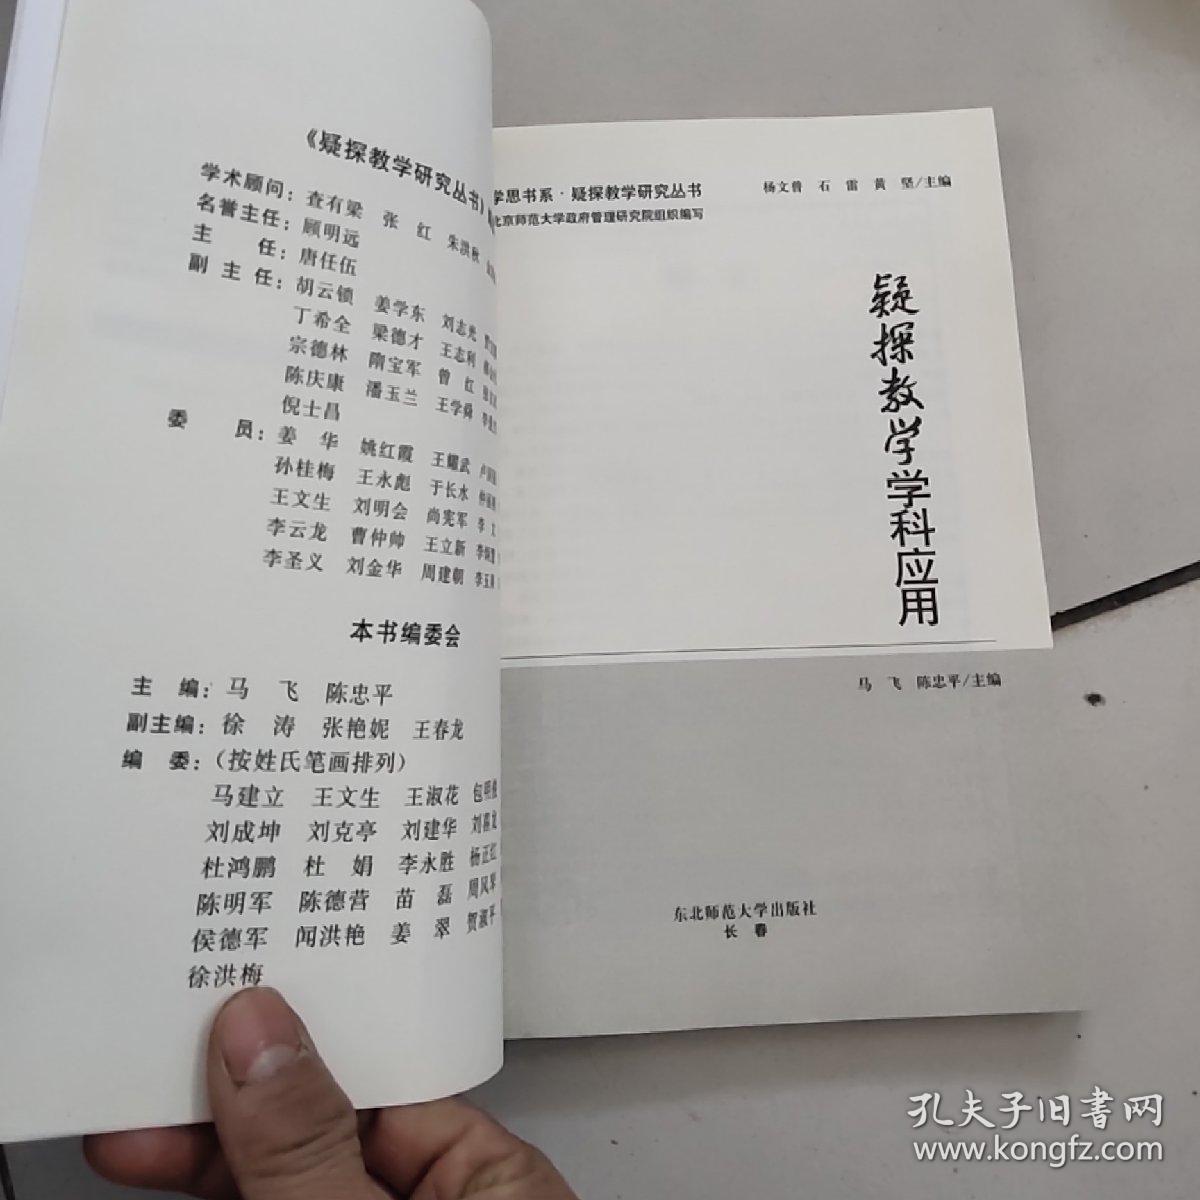 《疑探教学研究丛书》
学术顾问：查有梁 张 红 朱洪秋
名誉主任：顾明远
主 任：唐任伍
副 主 任：胡云锁 姜学东 刘志光
丁希全 梁德才 王志利
宗德林 隋宝军 曾 红
陈庆康 潘玉兰 王学舜
倪士昌
委 员：姜 华 姚红霞 王耀武
孙桂梅 王永彪 于长水
王文生 刘明会 尚宪军 李 文
李云龙 曹仲帅 王立新
李圣义 刘金华 周建朝 李玉
本书编委会
主 编：马 飞 陈忠平
副主编：徐 涛 张艳妮 王春龙
编 委：（按姓氏笔画排列）
马建立 王文生 王淑花 包明
刘成坤 刘克亭 刘建华 刘 龙
杜鸿鹏 杜 娟 李永胜 杨正红
陈明军 陈德营 苗 磊 周风琴
侯德军 闻洪艳 姜 翠 贺淑平
徐洪梅
学思书系·疑探教学研究丛书 杨文普 石 雷 黄 坚/主编
北京师范大学政府管理研究院组织编写
疑探教学学科应用
马 飞 陈忠平/主编
东北师范大学出版社
长 春
孔夫子旧书网
www.kongfz.com